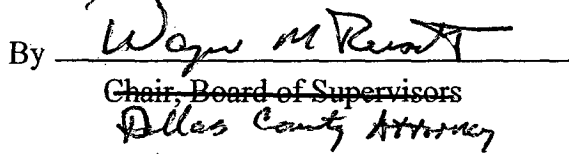 By Wayne M Reisetter
Chair, Board of Supervisors
Dallas County Attorney